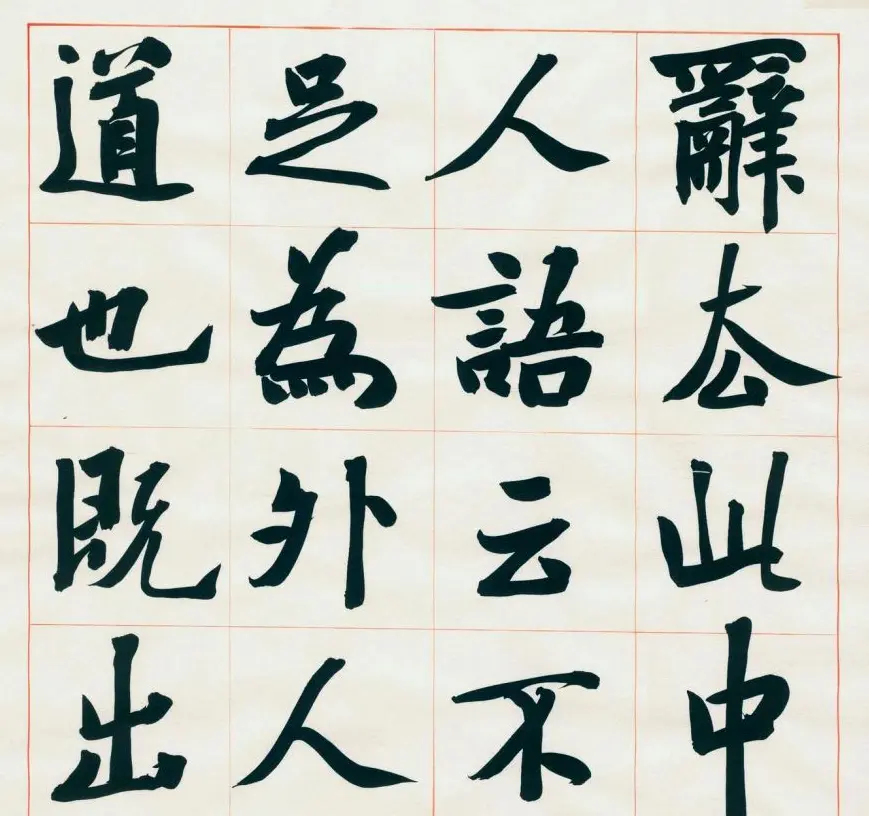 辭去此中
人語云不
足為外人
道也既出